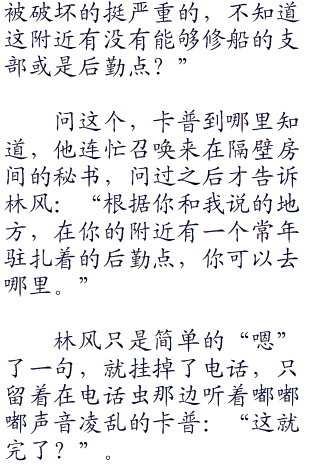 被破坏的挺严重的，不知道
这附近有没有能够修船的支
部或是后勤点？”
问这个，卡普到哪里知
道，他连忙召唤来在隔壁房
间的秘书，问过之后才告诉
林风：“根据你和我说的地
方，在你的附近有一个常年
驻扎着的后勤点，你可以去
哪里。”
林风只是简单的“嗯”
了一句，就挂掉了电话，只
留着在电话虫那边听着嘟嘟
嘟声音凌乱的卡普：“这就
完了？”。